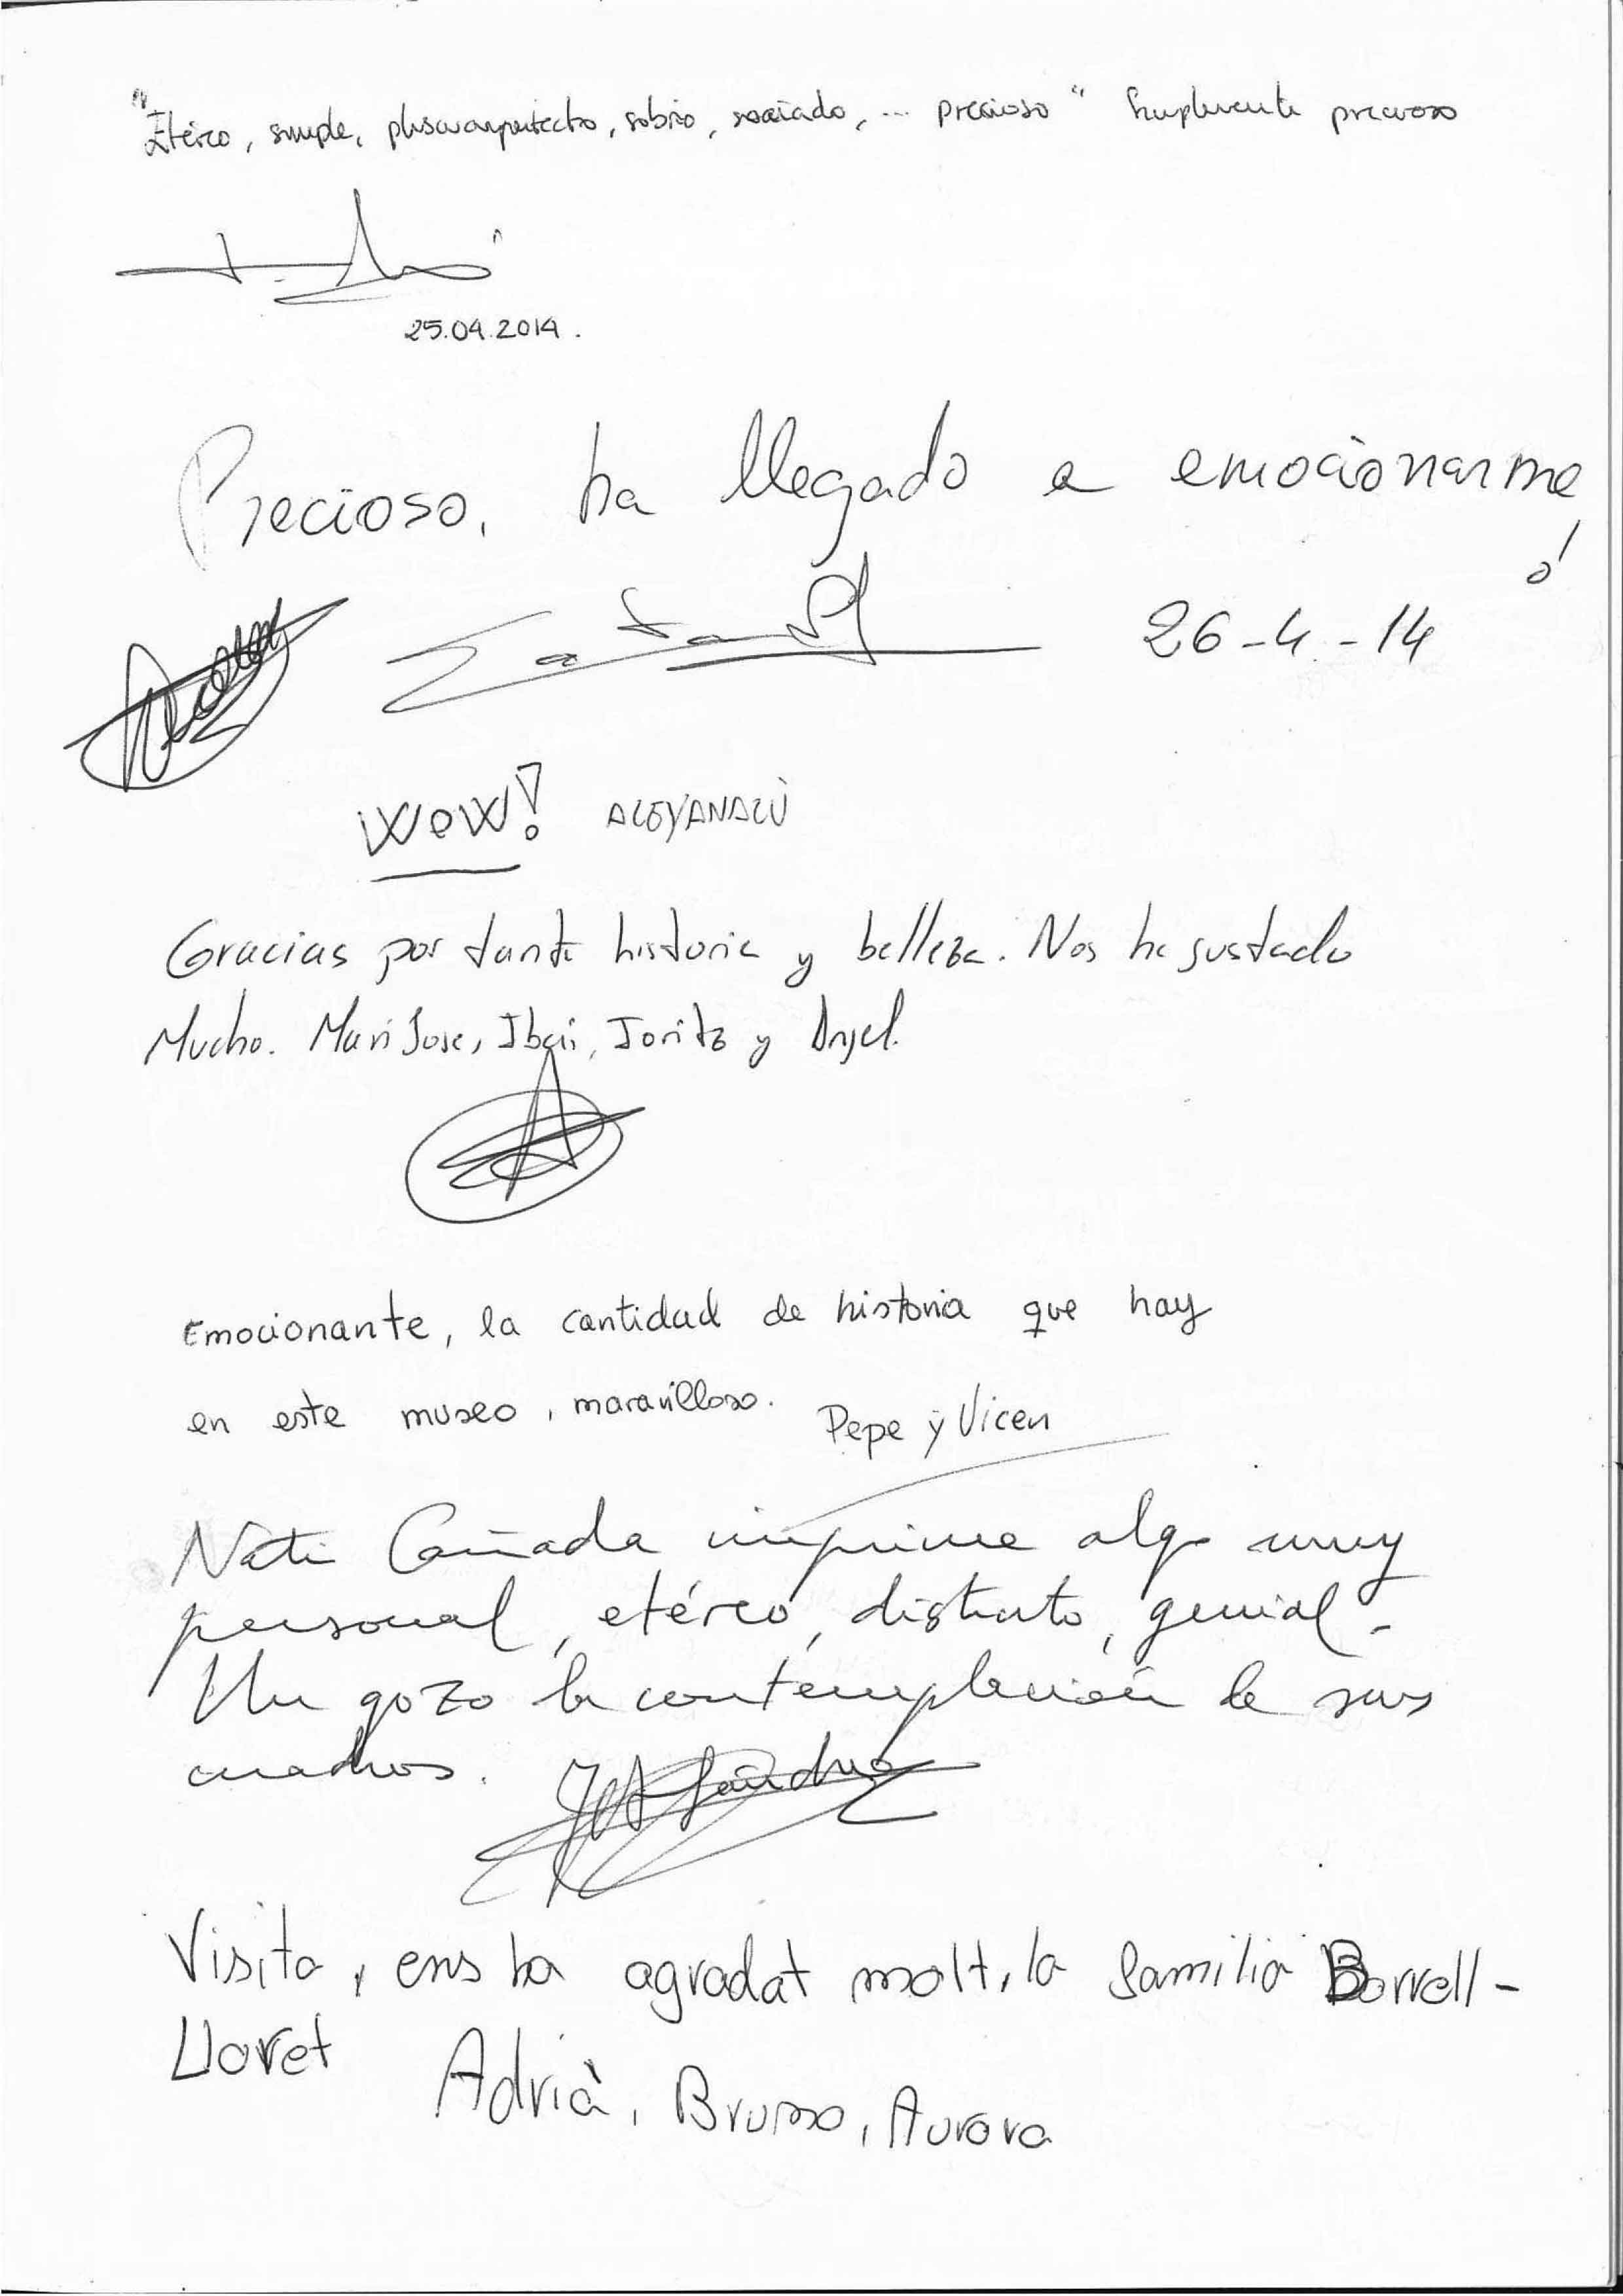 "Etéreo, simple, pluscuamperfecto, sobrio, saciado, ... precioso" Simplemente precioso
25.04.2014.
Precioso, ha llegado a emocionarme!
26-4-14
¡WOW!
Gracias por tanta historia y belleza. Nos ha gustado
Mucho. Mari Jose, Ibai, Joritz y Anjel.
Emocionante, la cantidad de historia que hay
en este museo, maravilloso. Pepe y Vicen
Nati Cañada imprime algo muy
personal, etéreo, distinto, genial.
Un gozo la contemplación de sus
cuadros.
Visita, ens ha agradat molt, la familia Borrell-
Lloret
Adrià, Bruno, Aurora